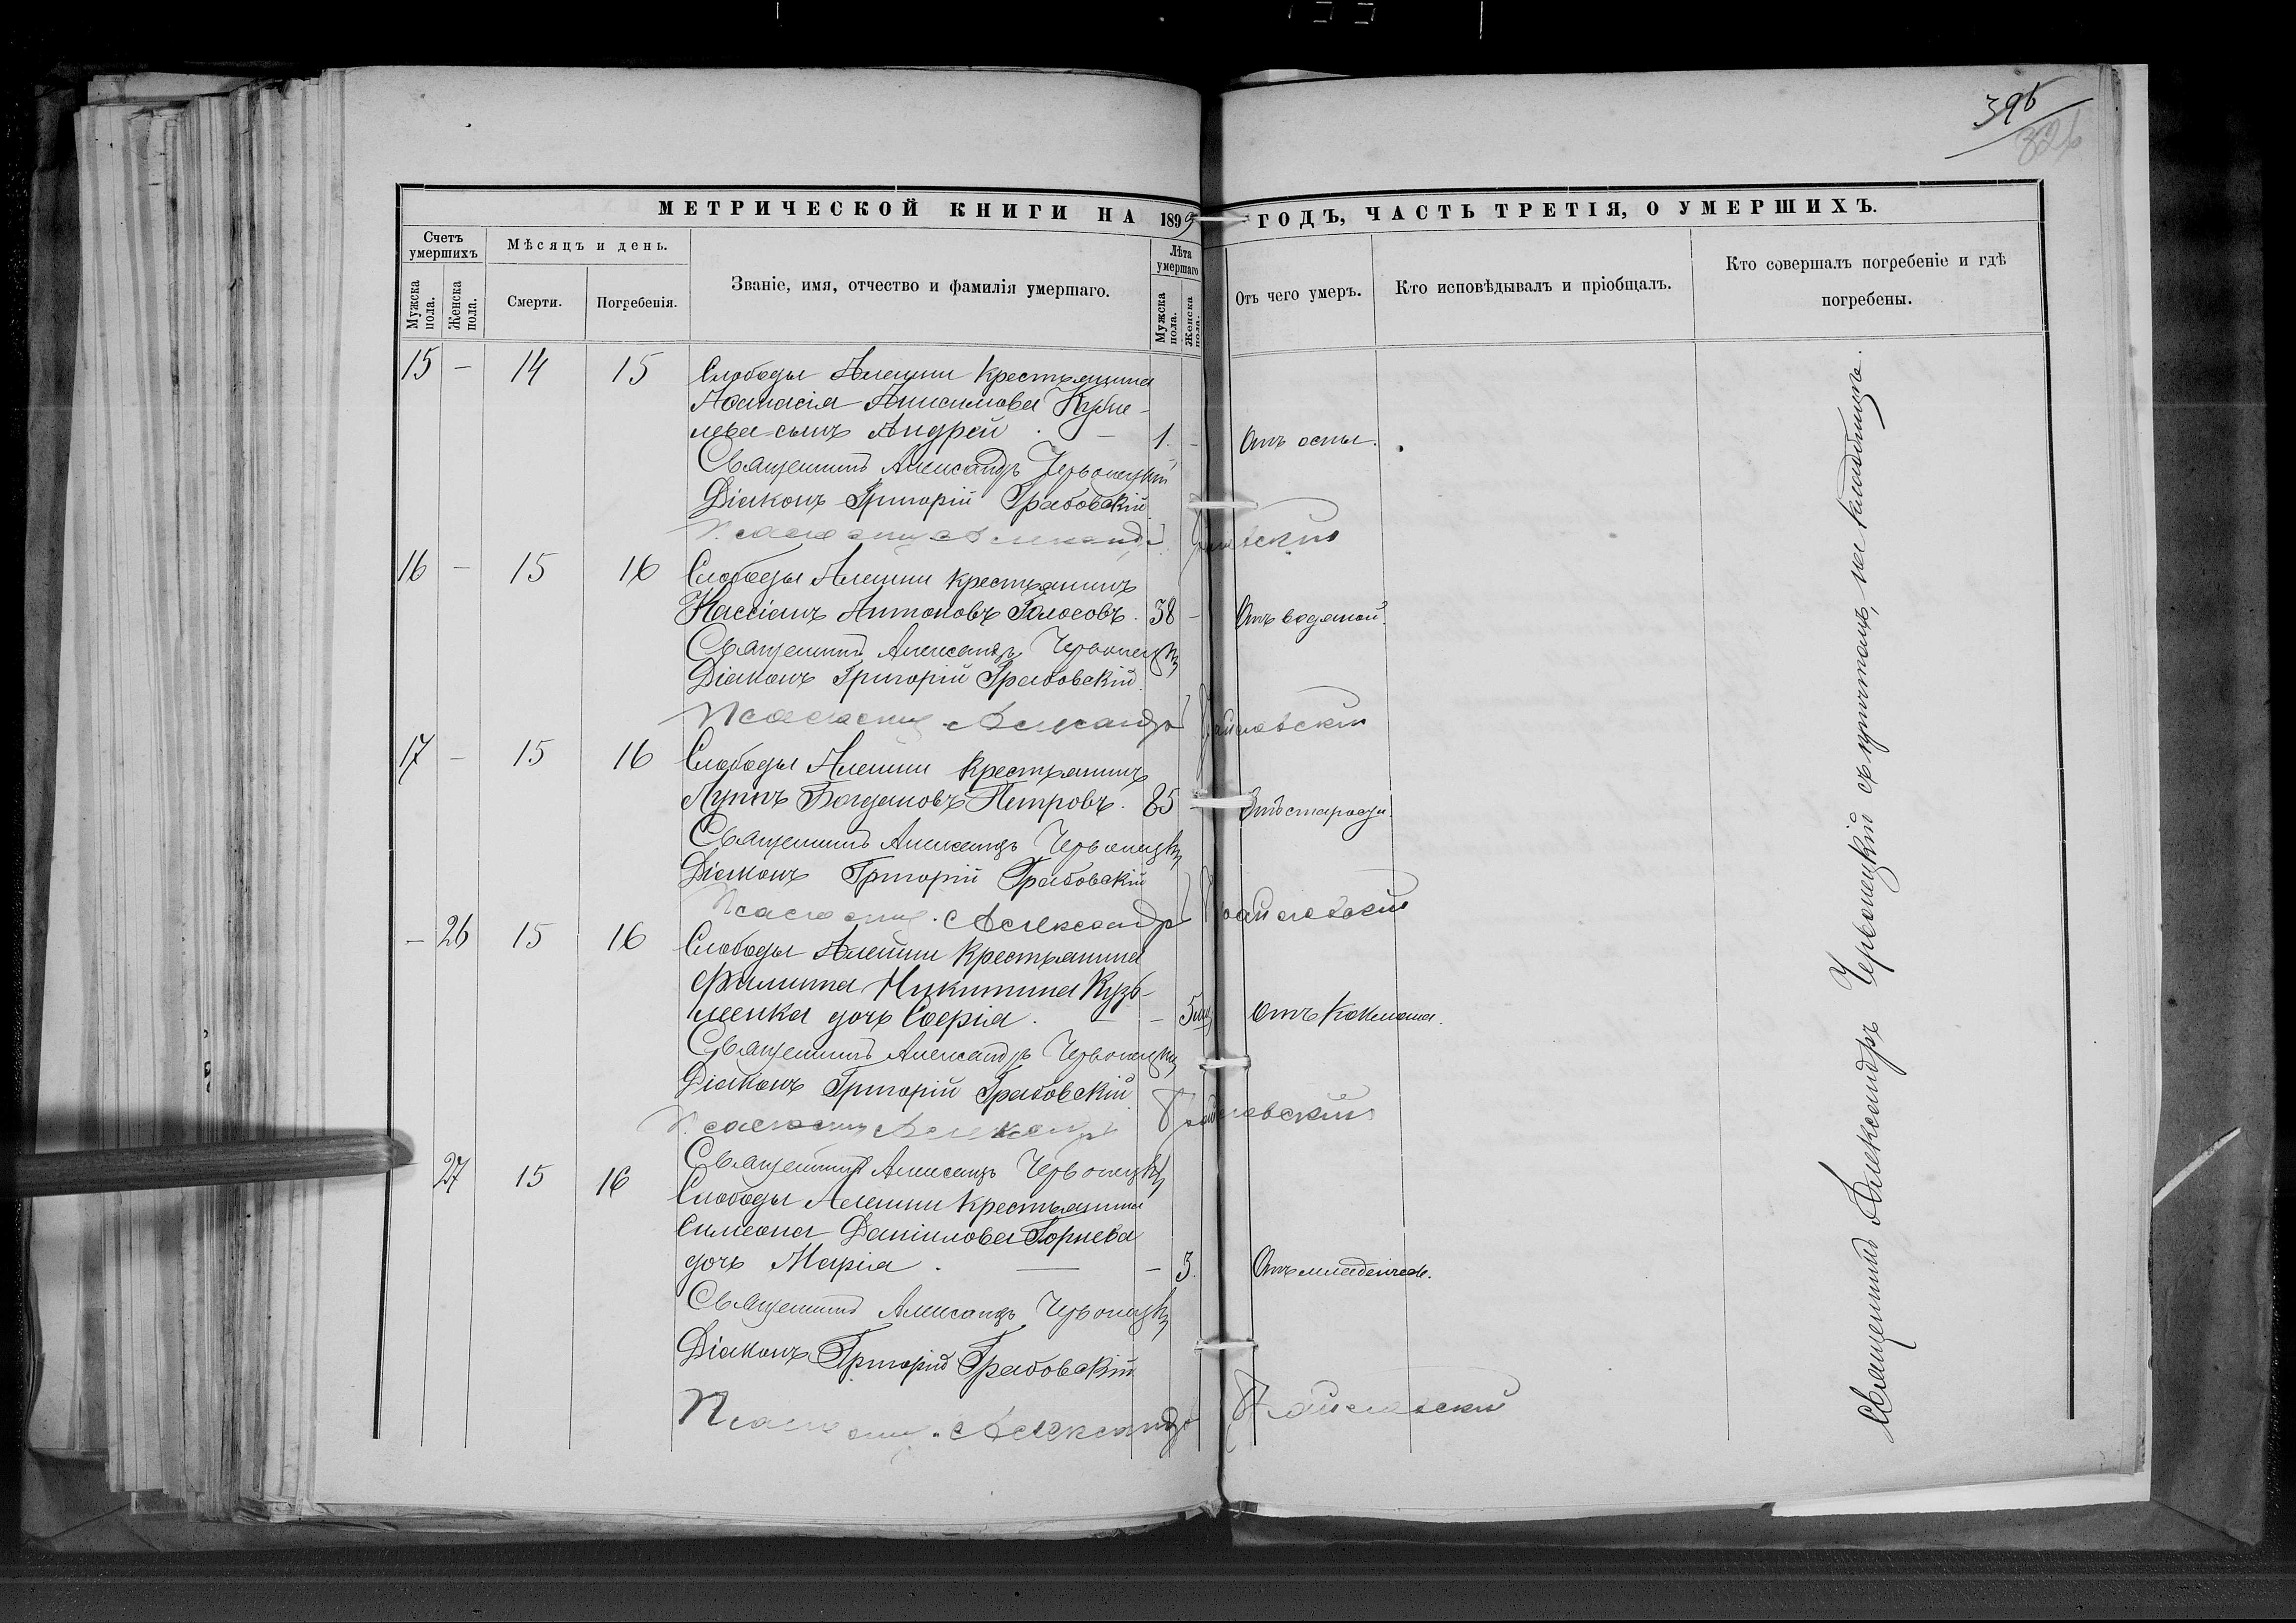 395
326
МЕТРИЧЕСКОЙ КНИГИ НА 1899 ГОДЪ, ЧАСТЬ ТРЕТІЯ, О УМЕРШИХЪ.
Счетъ умершихъ
Мѣсяцъ и день.
Званіе, имя, отчество и фамилія умершаго.
Лѣта умершаго
Отъ чего умеръ.
Кто исповѣдывалъ и пріобщалъ.
Кто совершалъ погребеніе и гдѣ погребены.
Мужска пола.
Женска пола.
Смерти.
Погребенія.
Мужска пола.
Женска пола.
15 — 14 15 Слободы Алешки крестьянина
Аѳанасія Анисимова
сынъ Андрей. — 1. — Отъ оспы.
Священникъ Александръ Червонецкій
Діаконъ Григорій Грабовскій
Псаломщ Александръ
16 — 15 16 Слободы Алешки крестьянинъ
Кассіанъ Антоновъ Голосовъ. 38 — Отъ водяной.
Священникъ Александръ Червонецкій
Діаконъ Григорій Грабовскій.
Псаломщ. Александръ
17 — 15 16 Слободы Алешки крестьянинъ
Луппъ Богдановъ Петровъ. 85 — Отъ старости.
Священникъ Александръ Червонецкій
Діаконъ Григорій Грабовскій
Псаломщ. Александръ
— 26 15 16 Слободы Алешки крестьянина
Филиппа Никитина Кузь-
менка дочь Софія. — — 5 мѣ Отъ коклюша.
Священникъ Александръ Червонецкій
Діаконъ Григорій Грабовскій
Псаломщ Александръ
Священникъ Александръ Червонецкій
— 27 15 16 Слободы Алешки крестьянина
Симеона Даніилова Горнева
дочь Марія. — — 3. Отъ младенческ.
Священникъ Александръ Червонецкій
Діаконъ Григорій Грабовскій
Псаломщ. Александръ
Священникъ Александръ Червонецкій съ причтомъ, на кладбищѣ.